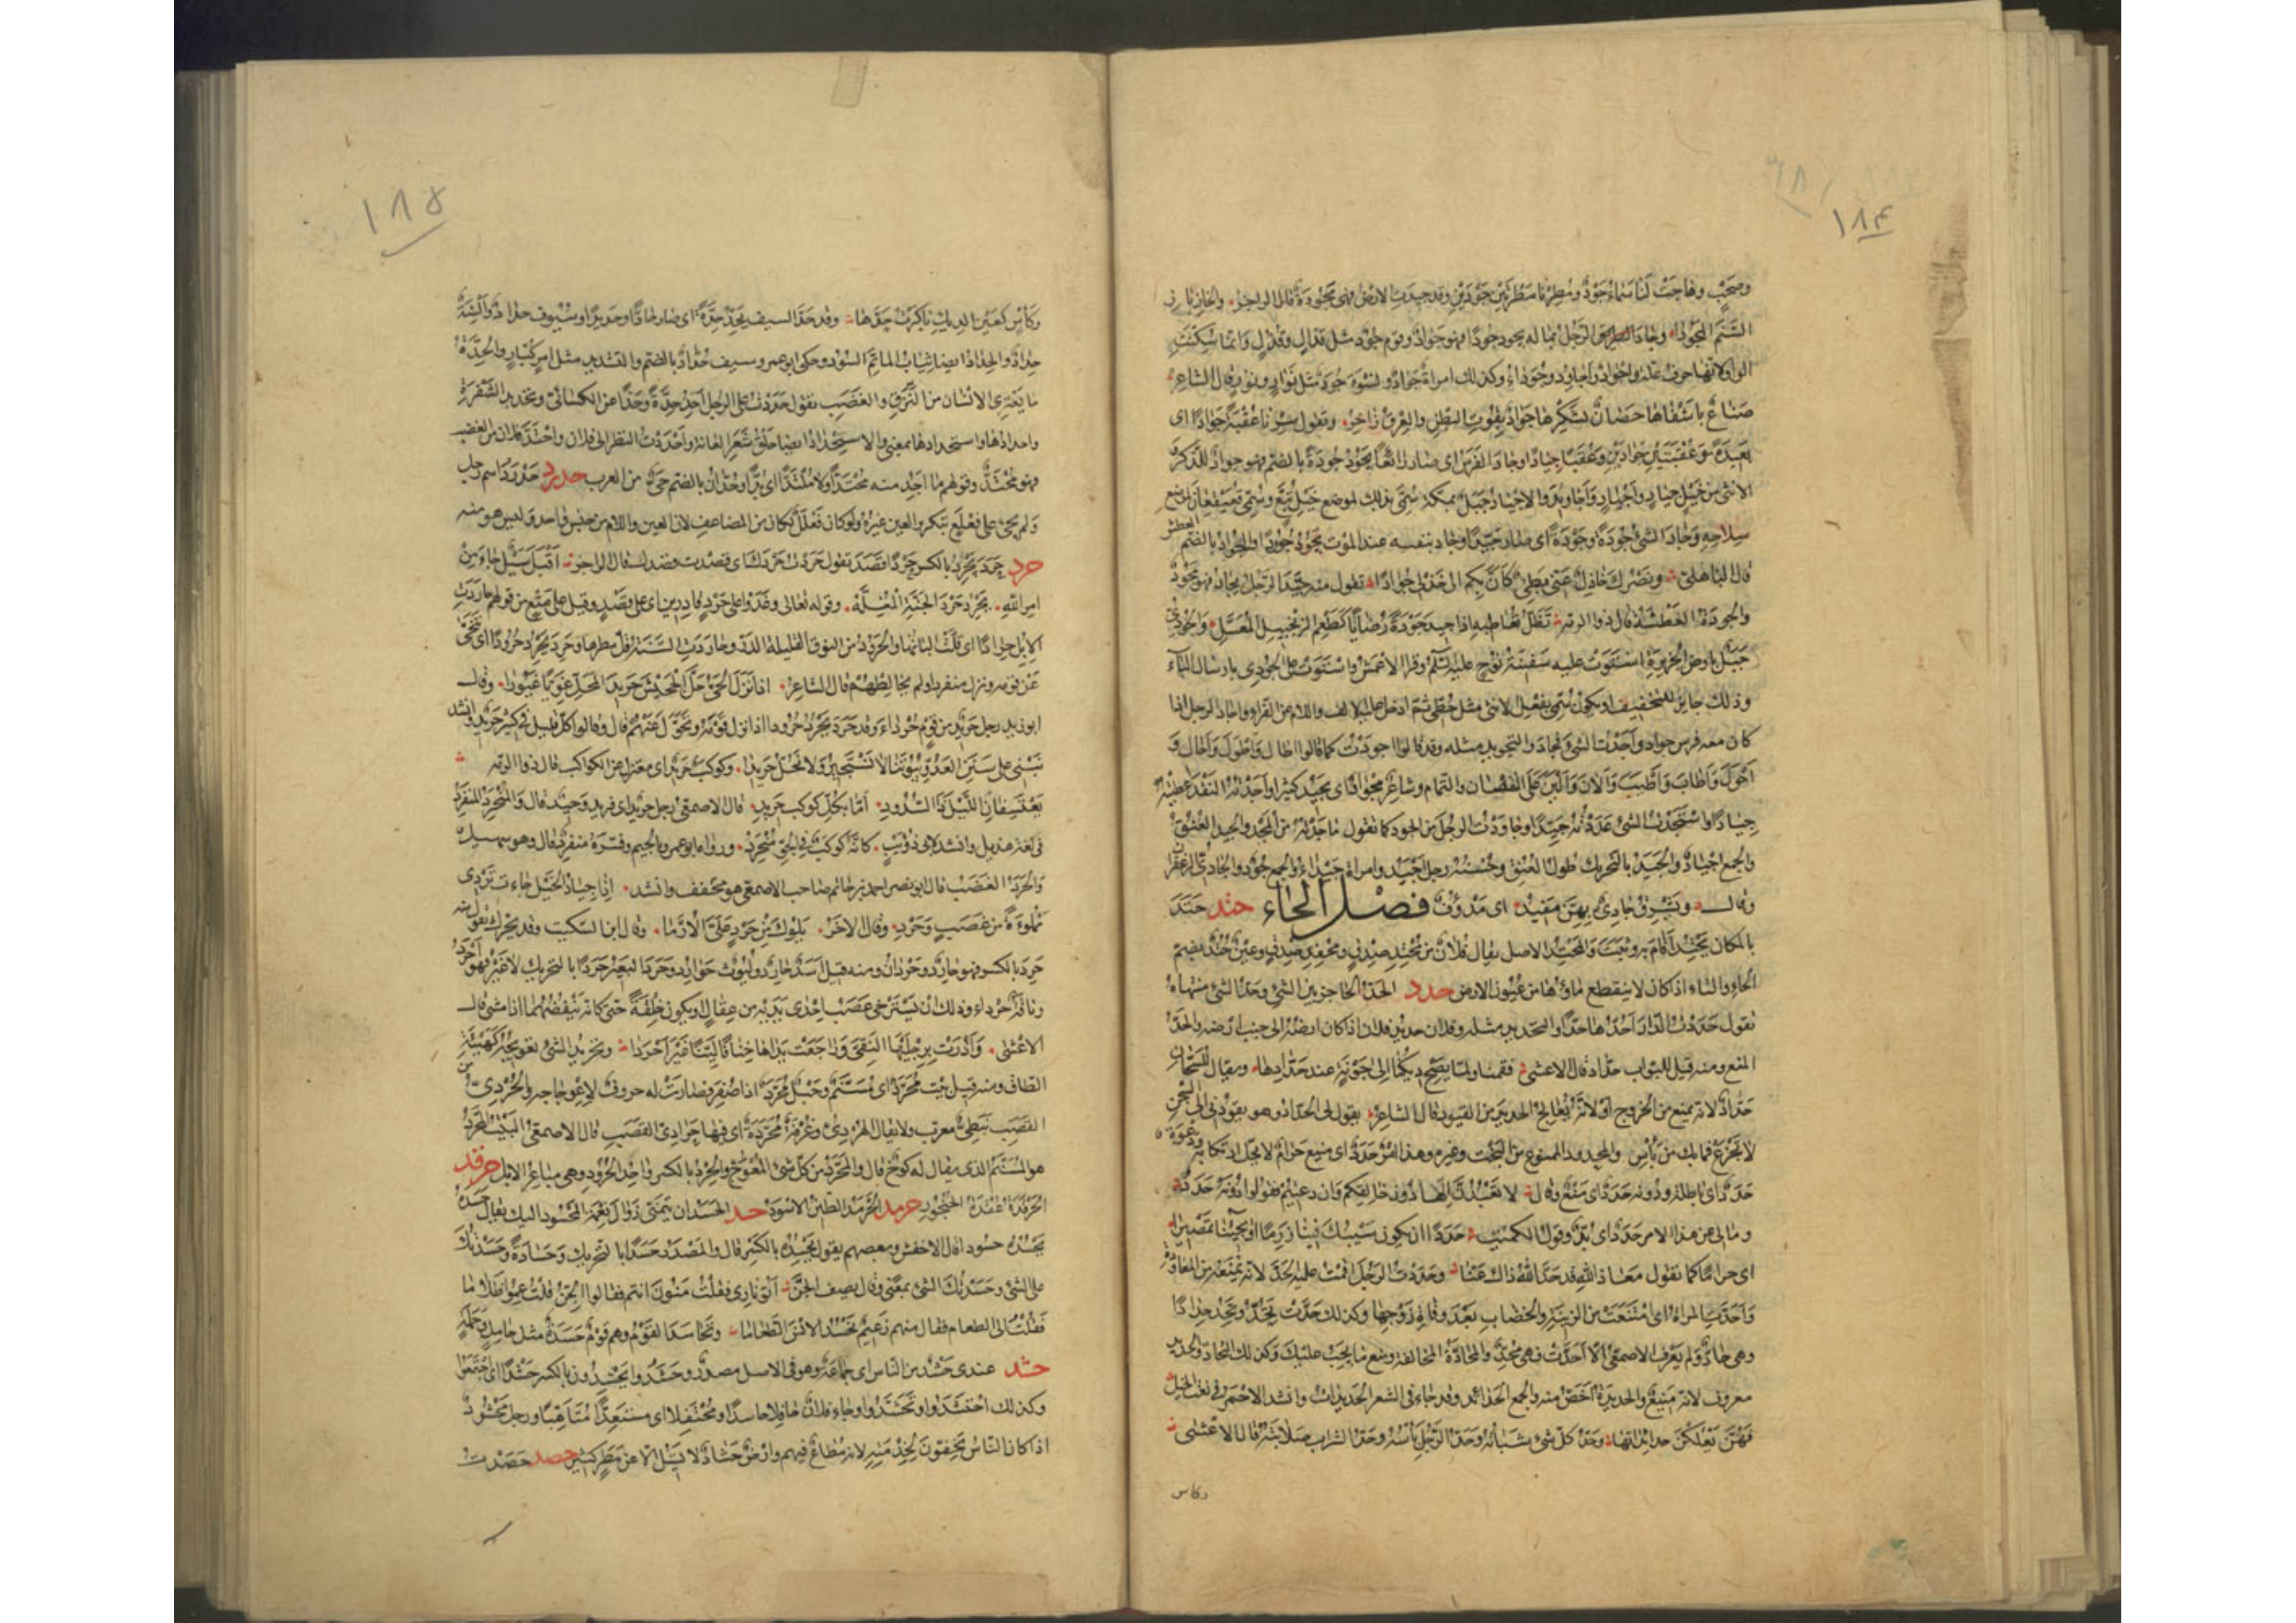 ١٨٤
وصحب وهاجت لنا سماء جود ومطرنا مطرتين جودين وقد جيدت الارض فهي مجودة قال الراجز والخازباز
السنم المجودا وجاد الرجل بماله يجود جودا فهو جواد وقوم جود مثل قذال وقذل وانما سكنت
الواو لانها حرف علة واجواد واجاود وجوداء وكذلك امراة جواد ونسوة جود مثل نوار ونور قال الشاعر
صناع باشفاها حصان بشكرها جواد بقوت البطن والعرق زاخر وتقول سرنا عقبة جوادا اى
بعيدة وعقبتين جوادين وعقبا جيادا وجاد الفرس اى صار رائعا يجود جودة بالضم فهو جواد للذكر و
الانثى من خيل جياد واجياد واجاويد والاجياد جبل بمكة سمى بذلك لموضع خيل تبع وسمى قعيقعان لموضع
سلاحه وجاد الشئ جودة وجودة اى صار جيدا وجاد بنفسه عند الموت يجود جودا والجواد بالضم العطش
قال الباهلى ونصرك خاذل عنى بطئ كان بكم الى خذلى جوادا تقول منه جيد الرجل يجاد فهو مجود
والجودة العطشة قال ذو الرمة تظل تعاطيه اذا جيد جودة رضابا كطعم الزنجبيل المعسل والجودى
جبل بارض الجزيرة استوت عليه سفينة نوح عليه السلم وقرا الاعمش واستوت على الجودى بارسال الياء
وذلك جايز للتخفيف او يكون سمى بفعل لانثى مثل حطى ثم ادخل عليه الالف واللام عن الفراء واجاد الرجل اذا
كان معه فرس جواد واجدت الشئ فجاد والتجويد مثله وقد قالوا اجودت كما قالوا اطال واطول واحال و
احول واطاب واطيب والان والين على النقصان والتمام وشاعر مجواد اى يجيد كثيرا واجدته النقد اعطيته
جيادا واستجدت الشئ عددته جيدا وجاودت الرجل من الجود كما تقول ماجدته من المجد والجيد العنق
والجمع اجياد والجيد بالتحريك طول العنق وحسنه رجل اجيد وامراة جيداء والجمع جود والجادى الزعفران
وقال وتشرق جادى بهن مفيد اى مدوف فصل الحاء حتد حتد
بالمكان يحتد اقام به وثبت والمحتد الاصل يقال فلان من محتد صدق ومحفد صدق وعين حتد بضم
الحاء والتاء اذا كان لا ينقطع ماؤها من عيون الارض حدد الحد الحاجز بين الشئين وحد الشئ منتهاه
تقول حددت الدار احدها حدا والتحديد مثله وفلان حديد فلان اذا كان ارضه الى جنب ارضه والحد
المنع ومنه قيل للبواب حداد قال الاعشى فقمنا ولما يصح ديكنا الى جونة عند حدادها ويقال للسجان
حداد لانه يمنع من الخروج او لانه يعالج الحديد من القيود قال الشاعر يقول لى الحداد وهو يقودنى الى السجن
لا تجزع فما بك من باس والمحدود الممنوع من البخت وغيره وهذا امر حدد اى منيع حرام لا يحل ارتكابه ودعوة
حدد اى باطلة ودونه حدد اى منع وقال لا تعبدن الها دون خالقكم وان دعيتم فقولوا دونه حدد
ومالى عن هذا الامر حدد اى بد وقول الكميت حددا ان يكون سيبك فينا زرما او يجيئنا تمصيرا
اى حراما كما تقول معاذ الله قد حد الله ذاك عنا وحددت الرجل اقمت عليه الحد لانه يمنعه من المعاودة
واحدت المراة اى امتنعت من الزينة والخضاب بعد وفاة زوجها وكذلك حدت تحد وتحد حدادا
وهى حاد ولم يعرف الاصمعى الا احدت فهى محد والمحادة المخالفة ومنع ما يجب عليك وكذلك التحاد والحديد
معروف لانه منيع والحديدة اخص منه والجمع الحدائد وقد جاء فى الشعر الحديدات وانشد الاحمر فى نعت الخيل
فهن يعلكن حدائداتها وحد كل شئ شباته وحد الرجل باسه وحد الشراب صلابته قال الاعشى
وكاس
١٨٥
وكاس كعين الديك باكرت حدها وقد حد السيف يحد حدة اى صار حادا وحديدا وسيوف حداد والسنة
حداد والحداد ايضا ثياب الماتم السود وحكى ابو عمرو سيف حداد بالضم والتشديد مثل امر كبار والحدة
ما يعترى الانسان من النزق والغضب تقول حددت على الرجل احد حدة وحدا عن الكسائى وتحديد الشفرة
واحدادها واستحدادها بمعنى والاستحداد ايضا حلق شعر العانة واحددت النظر الى فلان واحتد فلان من الغضب
فهو محتد وقولهم ما اجد منه محتدا ولا ملتدا اى بدا وحدان بالضم حى من العرب حدرد حدرد اسم رجل
ولم يجئ على فعلع بتكرير العين غيره ولو كان فعلل لكان من المضاعف لان العين واللام من جنس واحد وليس هو منه
حرد حرد يحرد بالكسر حردا قصد تقول حردت حردك اى قصدت قصدك قال الراجز اقبل سيل جاء من
امر الله يحرد حرد الجنة المغلة وقوله تعالى وغدوا على حرد قادرين اى على قصد وقيل على منع من قولهم حاردت
الابل حرادا اى قلت البانها والحرود من النوق القليلة الدر وحاردت السنة قل مطرها وحرد يحرد حرودا اى تنحى
عن قومه ونزل منفردا ولم يخالطهم قال الشاعر اذا نزل الحى حل الجحيش حريد المحل غويا غيورا وقال
ابو زيد رجل حريد من قوم حرداء وقد حرد يحرد حرودا اذا ترك قومه وتحول عنهم قال وقالوا كل قليل فى كثير حريد وانشد
نبنى على سنن العدو بيوتنا لا نستجير ولا نحل حريدا وكوكب حريد اى معتزل عن الكواكب قال ذو الرمة
يعتسفان الليل ذا السدود اما بكل كوكب حريد قال الاصمعى رجل حريد اى فريد وحيد قال والمنحرد المنفرد
فى لغة هذيل وانشد لابى ذؤيب كانه كوكب فى الجو منحرد ورواه ابو عمرو بالجيم وفسره منفرد قال وهو سهيل
والحرد الغضب قال ابو نصر احمد بن حاتم صاحب الاصمعى هو مخفف وانشد اذا جياد الخيل جاءت تردى
مملوءة من غضب وحرد وقال الاخر يلوك من حرد على الارما وقال ابن السكيت وقد يحرك تقول منه
حرد بالكسر فهو حارد وحردان ومنه قيل اسد حارد وليوث حوارد وحرد البعير حردا بالتحريك لا غير فهو احرد
وناقة حرداء وذلك ان يسترخى عصب احدى يديه من عقال او يكون خلقة حتى كانه ينفضها اذا مشى قال
الاعشى واذرت برجليها النفى وراجعت يداها خنافا لينا غير احردا وتحريد الشئ تعويجه كهيئة
الطاق ومنه قيل بيت محرد اى مسنم وحبل محرد اذا ضفر فصارت له حروف لاعوجاجه والحردى من
القصب نبطى معرب ولا يقال الهردى وغرفة محردة اى فيها حرادى القصب قال الاصمعى البيت المحرد
هو المسنم الذى يقال له كوخ قال والمحرد من كل شئ المعوج والحرد بالكسر واحد الحرود وهى مباعر الابل حرقد
الحرقدة عقدة الحنجور حرمد الحرمد الطين الاسود حسد الحسد ان يتمنى زوال نعمة المحسود اليك يقال حسده
يحسده حسودا قال الاخفش وبعضهم يقول يحسده بالكسر قال والمصدر حسدا بالتحريك وحسادة وحسدتك
على الشئ وحسدتك الشئ بمعنى وقال يصف الجن اتوا نارى فقلت منون انتم فقالوا الجن قلت عموا ظلاما
فقلت الى الطعام فقال منهم زعيم نحسد الانس الطعاما وتحاسد القوم وهم قوم حسدة مثل حامل وحملة
حشد عندى حشد من الناس اى جماعة وهو فى الاصل مصدر وحشدوا يحشدون بالكسر حشدا اى اجتمعوا
وكذلك احتشدوا وتحشدوا وجاء فلان حافلا حاشدا ومحتفلا اى مستعدا متاهبا ورجل محشود
اذا كان الناس يخفون لخدمته لانه مطاع فيهم وارض حشاد لا تسيل الا عن مطر كثير حصد حصدت